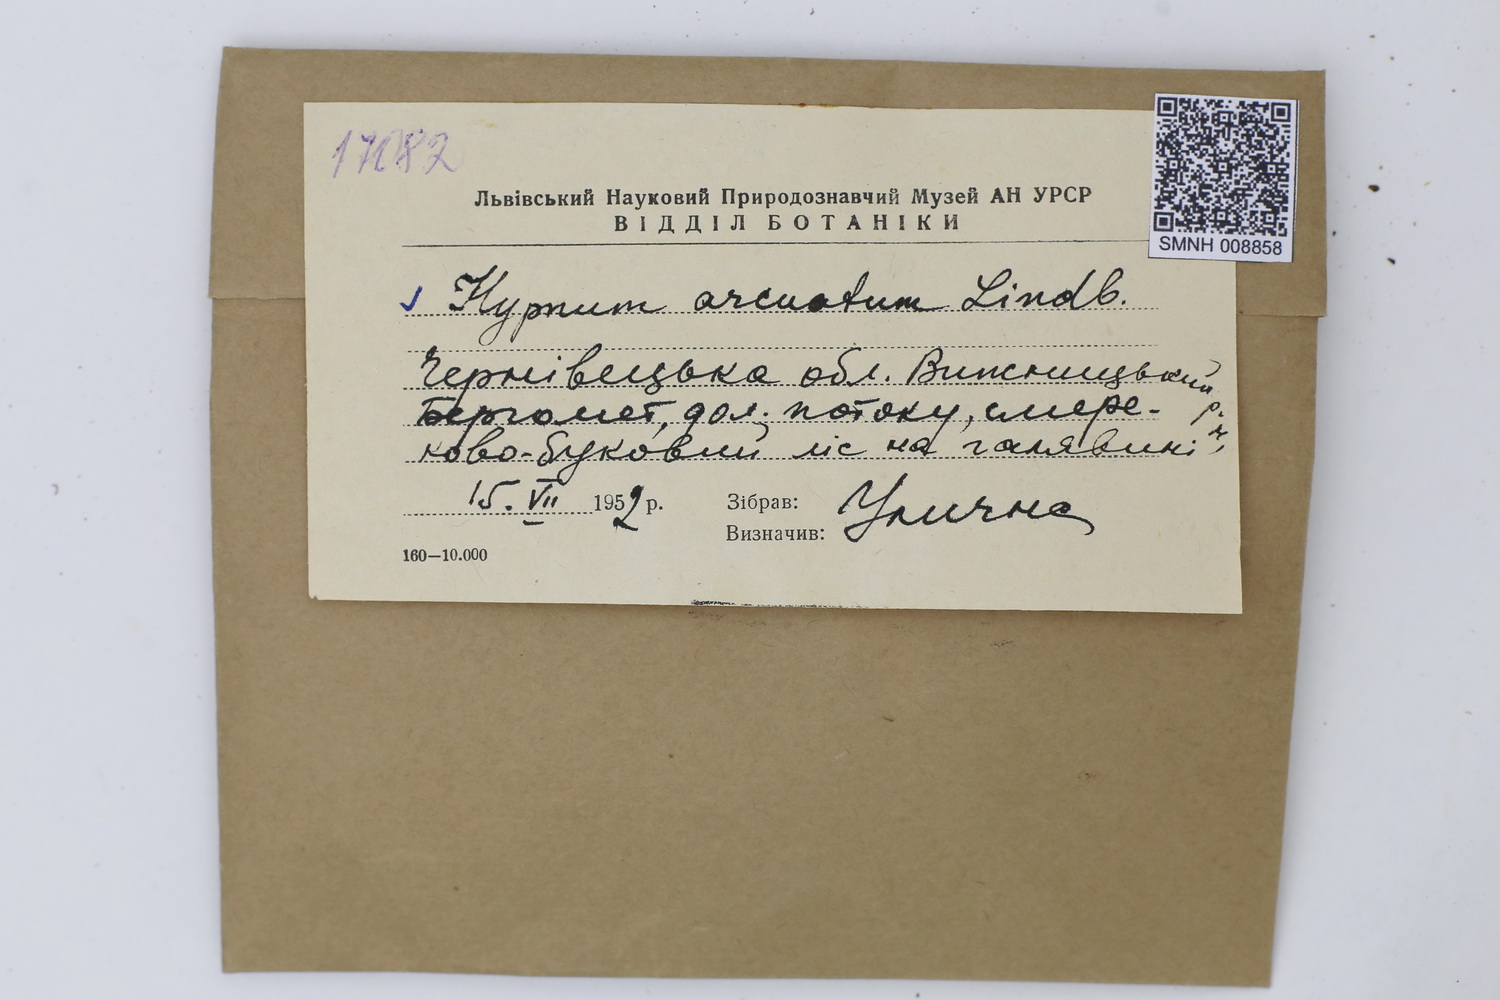 17082
Львівський Науковий Природознавчий Музей АН УРСР
ВІДДІЛ БОТАНІКИ
SMNH 008858
Hypnum arcuatum Lindb.
Чернівецька обл. Вижницький р-н,
Бергомет, дол. потоку, смере-
ково-буковий ліс на галявині
15. VII 1952 р.
Зібрав: Улична
Визначив:
160—10.000